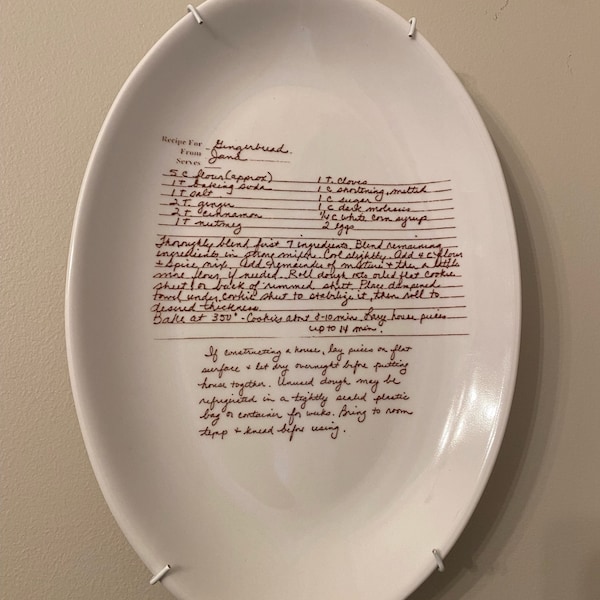 Recipe For Gingerbread.
From Jane
Serves
5 C flour (approx) 1 T. cloves
1 T baking soda 1 C shortening, melted
1 T salt 1 C sugar
2 T. ginger 1 C dark molasses
2 T. cinnamon ½ C white corn syrup
1 T nutmeg 2 eggs
Thoroughly blend first 7 ingredients. Blend remaining
ingredients in strong mixer. Cool slightly. Add 4 C flour
+ spice mix. Add remainder of mixture + then a little
more flour, if needed. Roll dough onto oiled flat cookie
sheet or back of rimmed sheet. Place dampened
towel under cookie sheet to stabilize it, then roll to
desired thickness.
Bake at 350° - Cookies about 8-10 min. Large house pieces
up to 14 min.
If constructing a house, lay pieces on flat
surface + let dry overnight before putting
house together. Unused dough may be
refrigerated in a tightly sealed plastic
bag or container for weeks. Bring to room
temp + knead before using.